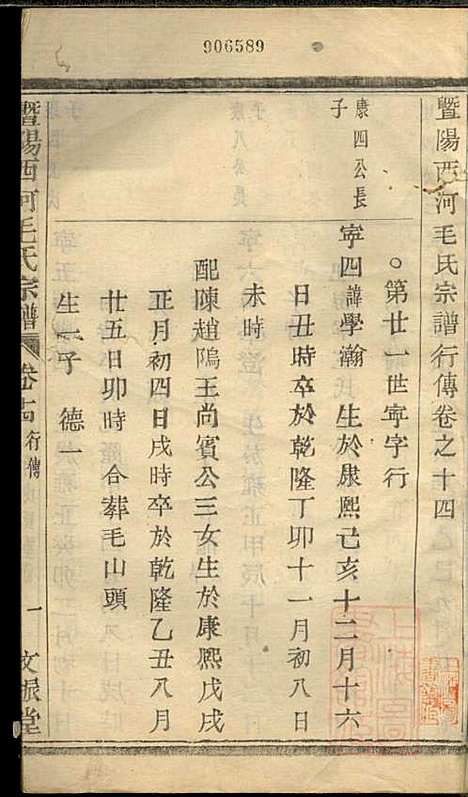 906589
暨陽西河毛氏宗譜行傳卷之十四
○第廿一世寧字行
康四公長子
寧四諱學瀚 生於康熙己亥十二月十六
日丑時卒於乾隆丁卯十一月初八日
未時
配陳趙鴆王尚賓公三女生於康熙戊戌
正月初四日戌時卒於乾隆乙丑八月
廿五日卯時 合葬毛山頭
生一子 德一
暨陽西河毛氏宗譜
卷十四
行傳
一
文振堂